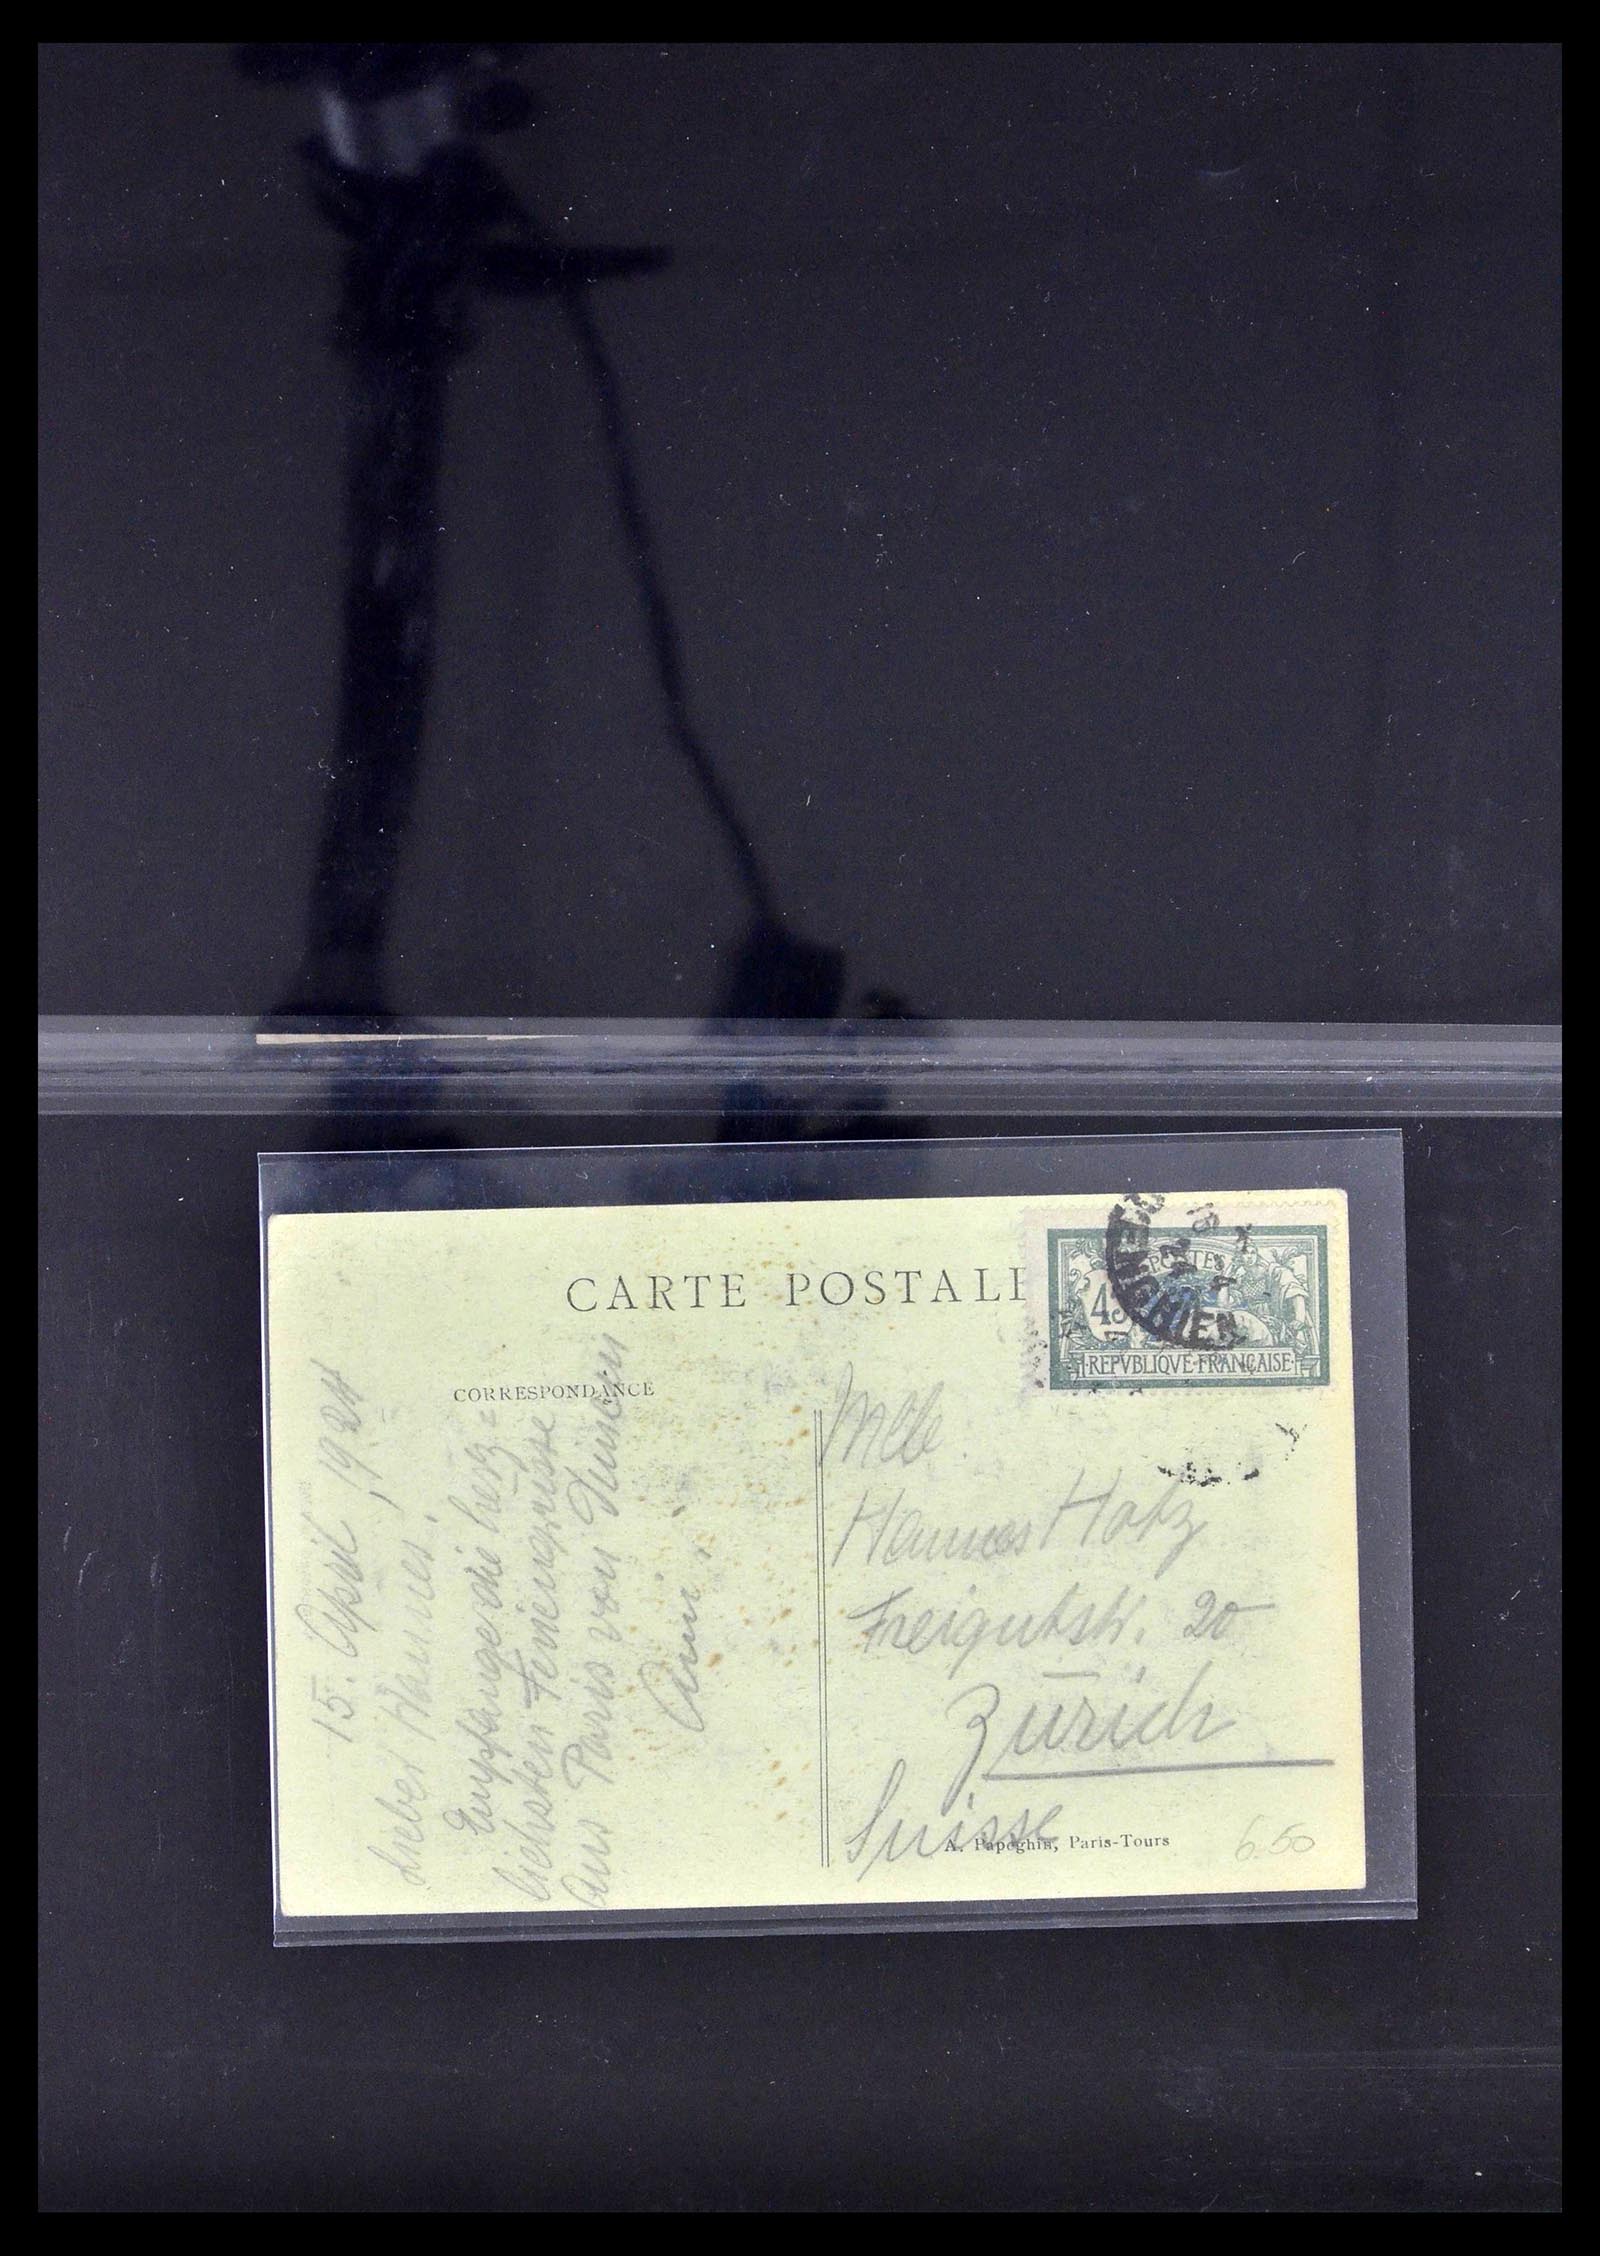 CARTE POSTALE
CORRESPONDANCE
15. April, 1924
Lieber Hannes!
Empfange die herz=
lichsten Feriengrüsse
Aus Paris von Deinem
POSTES
45
REPVBLIQVE FRANÇAISE
ENGHIEN
24
Mlle
Hannes Hotz
Freigutstr. 20
Zürich
Suisse
A. Papeghin, Paris-Tours
6.50